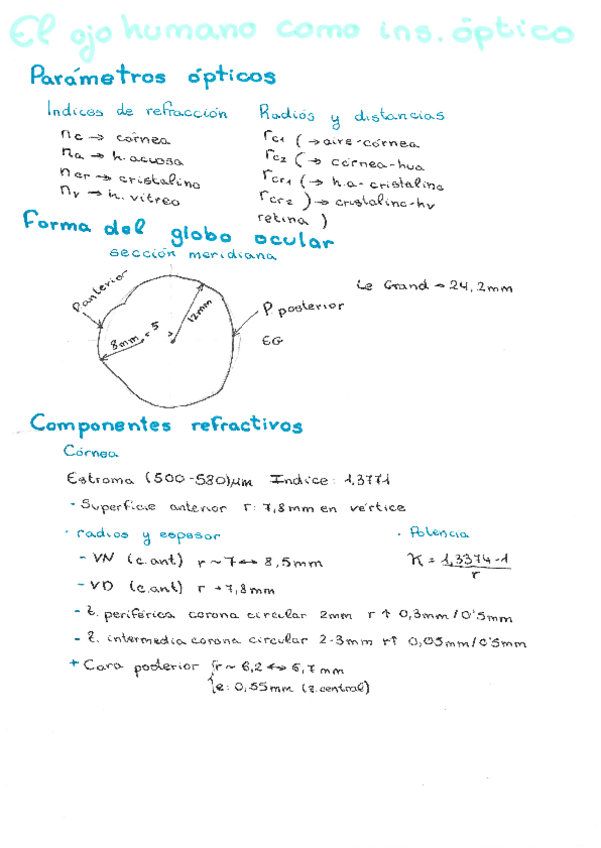 El ojo humano como ins. óptico
Parámetros ópticos
Indices de refracción
nc → córnea
na → h. acuosa
ncr → cristalino
nv → h. vitreo
Radios y distancias
rc1 ( → aire-córnea
rc2 ( → córnea-hua
rcr1 ( → h.a- cristalino
rcr2 ) → cristalino-hv
retina )
Forma del globo ocular
sección meridiana
P anterior
8mm
5
12mm
P posterior
EG
Le Grand → 24,2mm
Componentes refractivos
Córnea
Estroma (500-580)μm Indice: 1,3771
- Superficie anterior r: 7,8mm en vértice
· radios y espesor
- VN (c.ant) r ~ 7 ↔ 8,5mm
- VD (c.ant) r → 7,8mm
- z. periférica corona circular 2mm r ↑ 0,3mm/0'5mm
- z. intermedia corona circular 2-3mm r↑ 0,05mm/0'5mm
+ Cara posterior { r ~ 6,2 ↔ 6,7mm
e: 0,55mm (z.central)
· Potencia
K = 1,3374-1
r